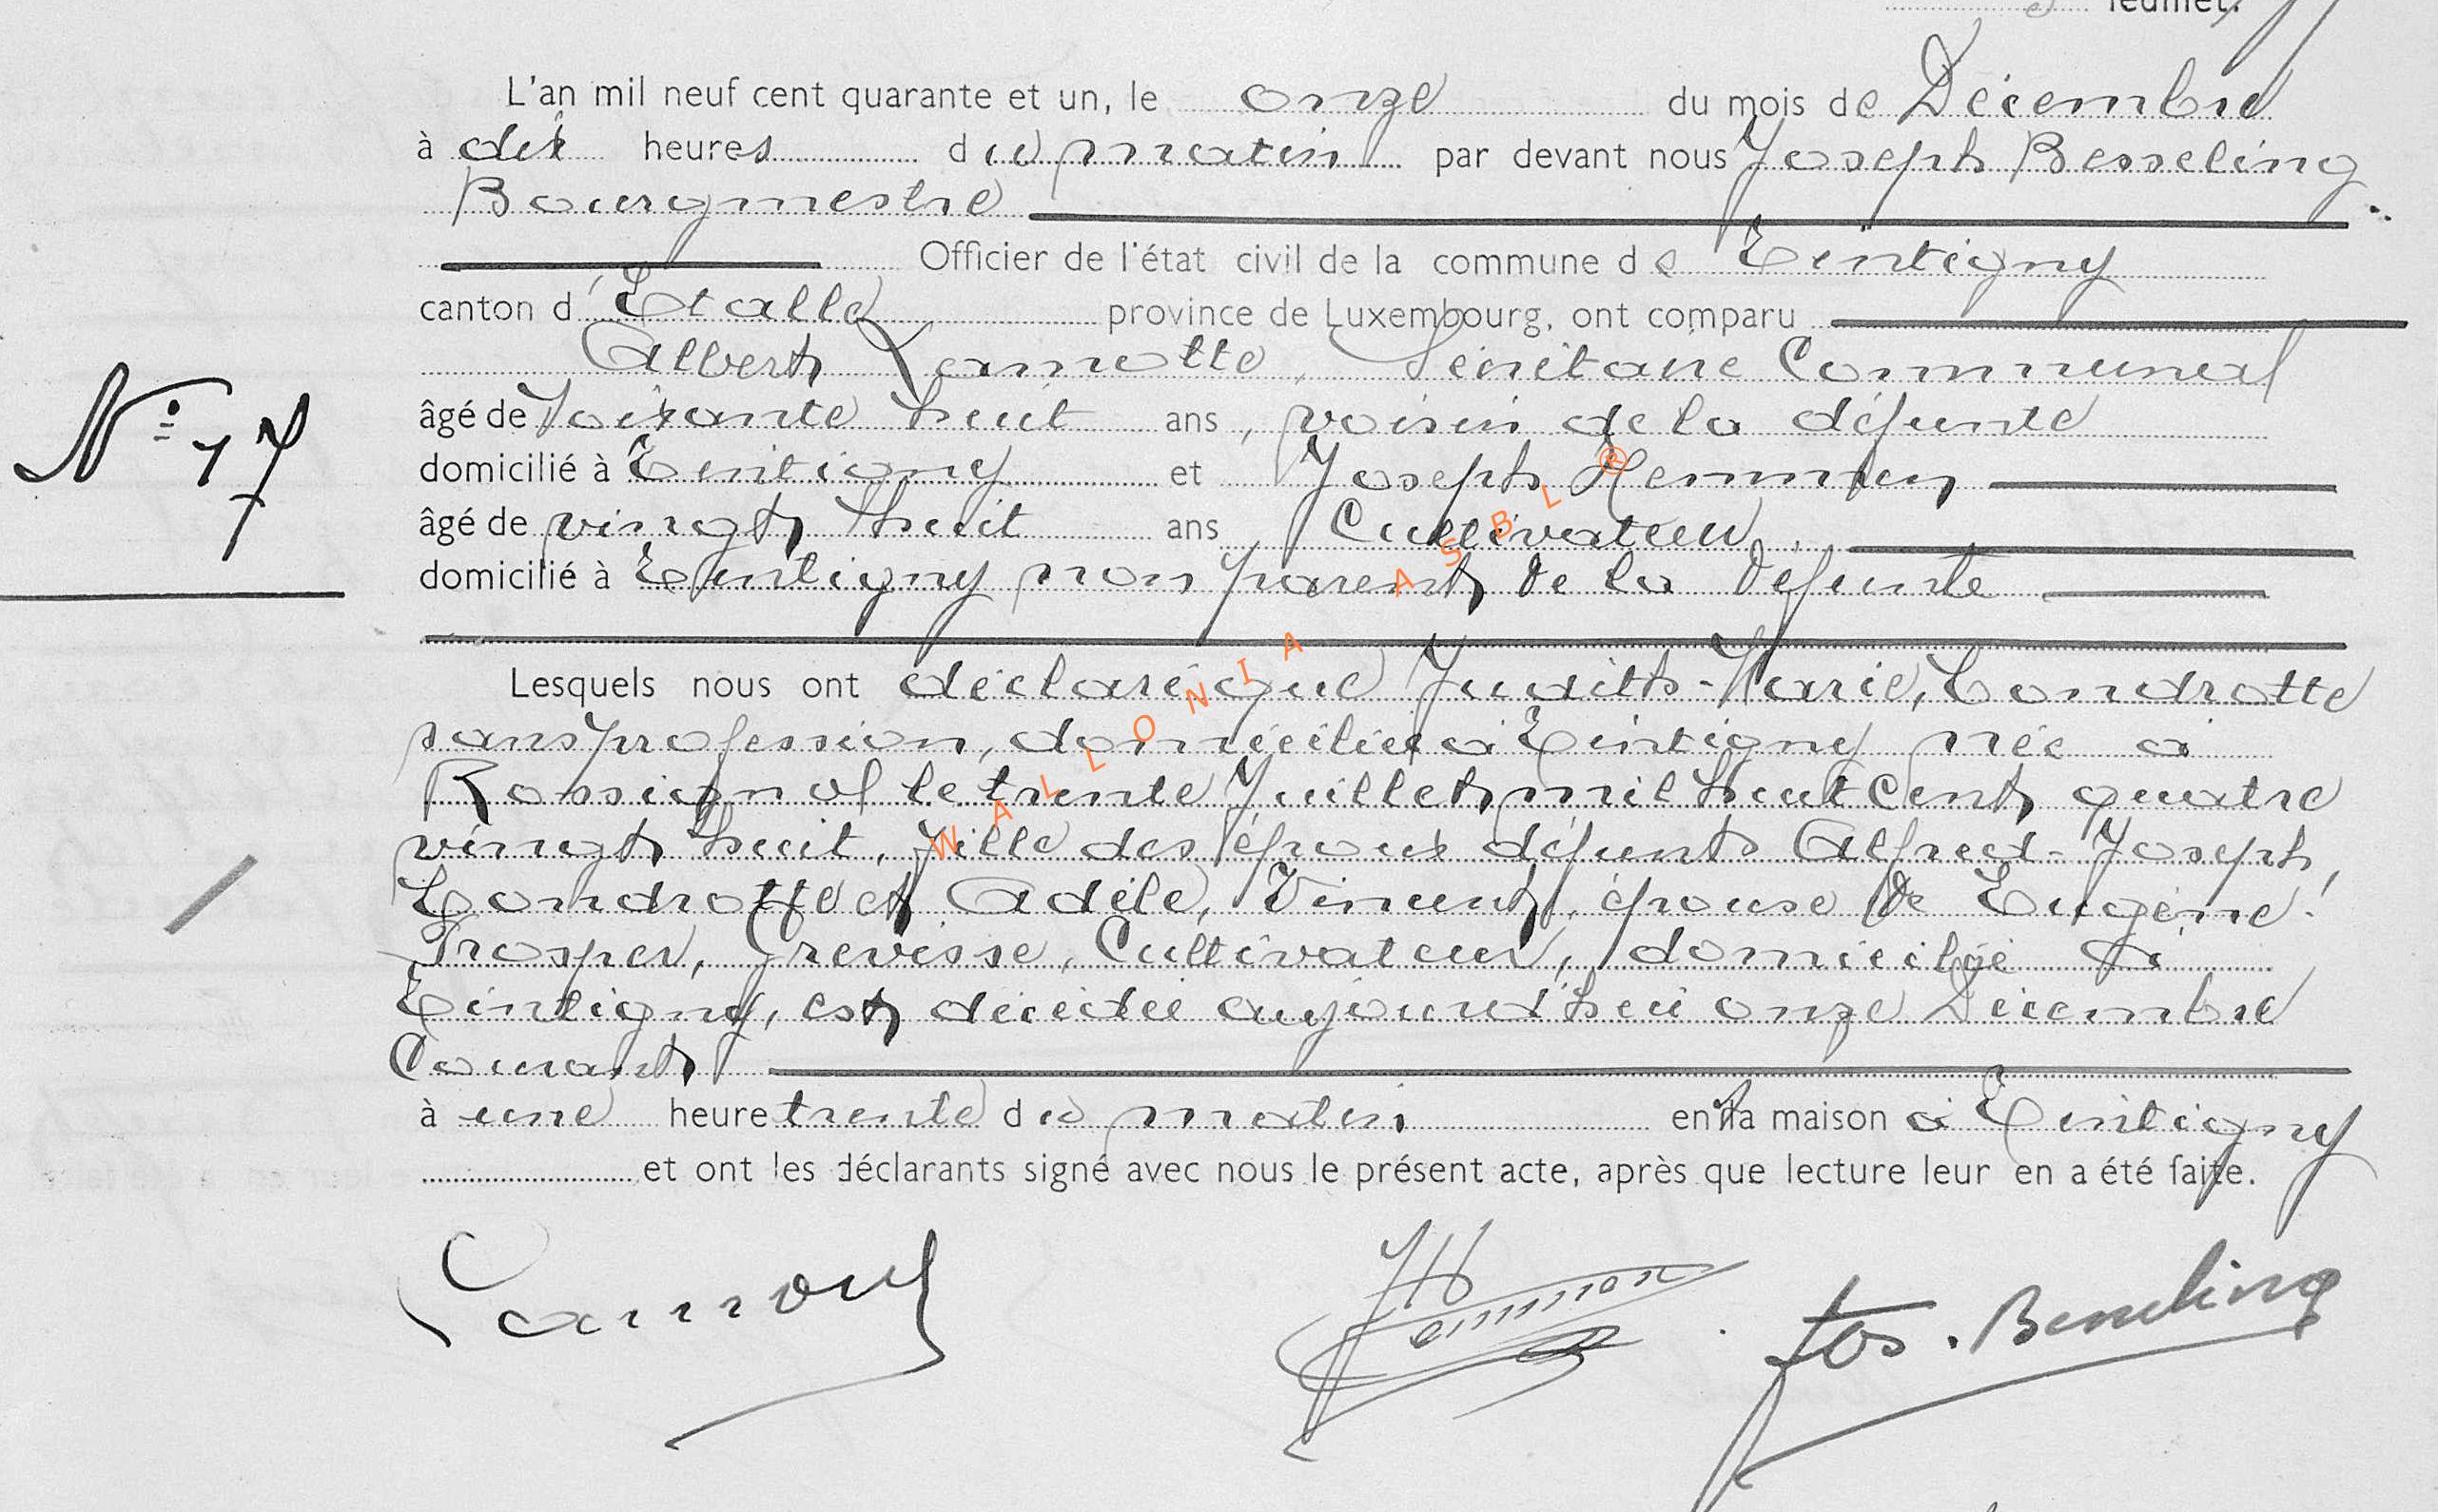 feuillet.
L'an mil neuf cent quarante et un, le onze du mois de Décembre
à dix heures du matin par devant nous Joseph Besseling
Bourgmestre
Officier de l'état civil de la commune de Tintigny
canton d'Etalle province de Luxembourg, ont comparu
Albert Lamotte, Secrétaire Communal
âgé de soixante huit ans, voisin de la défunte
domicilié à Tintigny et Joseph Hemmen
âgé de vingt huit ans Cultivateur,
domicilié à Tintigny non parent de la défunte
Lesquels nous ont déclaré que Judith-Marie, Londrotte
sans profession, domiciliée à Tintigny née à
Rossignol le trente Juillet mil huit cent quatre
vingt huit, fille des époux défunts Alfred-Joseph,
Londrotte et Adèle, Vincent, épouse de Eugène-
Prosper, Grevisse, Cultivateur, domicilié à
Tintigny, est décédée aujourd'hui onze Décembre
Courant
à une heure trente du matin en sa maison à Tintigny
et ont les déclarants signé avec nous le présent acte, après que lecture leur en a été faite.
N° 47
Hemmen
Jos. Besseling
WALLONIA ASBL ®